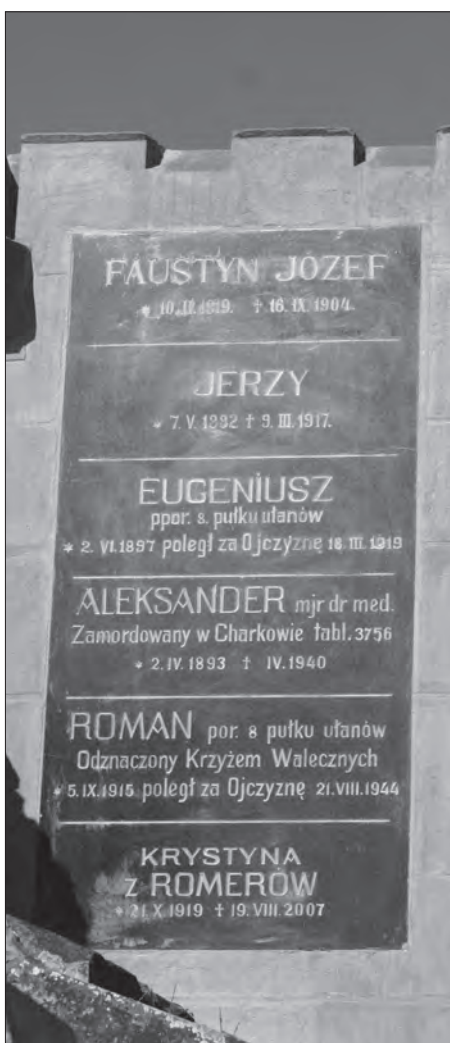 FAUSTYN JÓZEF
* 10.II.1819. † 16.IX.1904.
JERZY
* 7.V.1892 † 9.III.1917.
EUGENIUSZ
ppor. 8. pułku ułanów
* 2.VI.1897 poległ za Ojczyznę 18.III.1919
ALEKSANDER mjr dr med.
Zamordowany w Charkowie tabl. 3756
* 2.IV.1893 † IV.1940
ROMAN por. 8 pułku ułanów
Odznaczony Krzyżem Walecznych
* 5.IX.1915 poległ za Ojczyznę 21.VIII.1944
KRYSTYNA
Z ROMERÓW
* 21.X.1919 † 19.VIII.2007